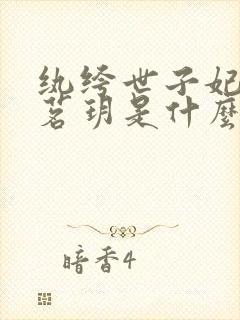 纨绔世子妃
茗玥是什麼
暗香4